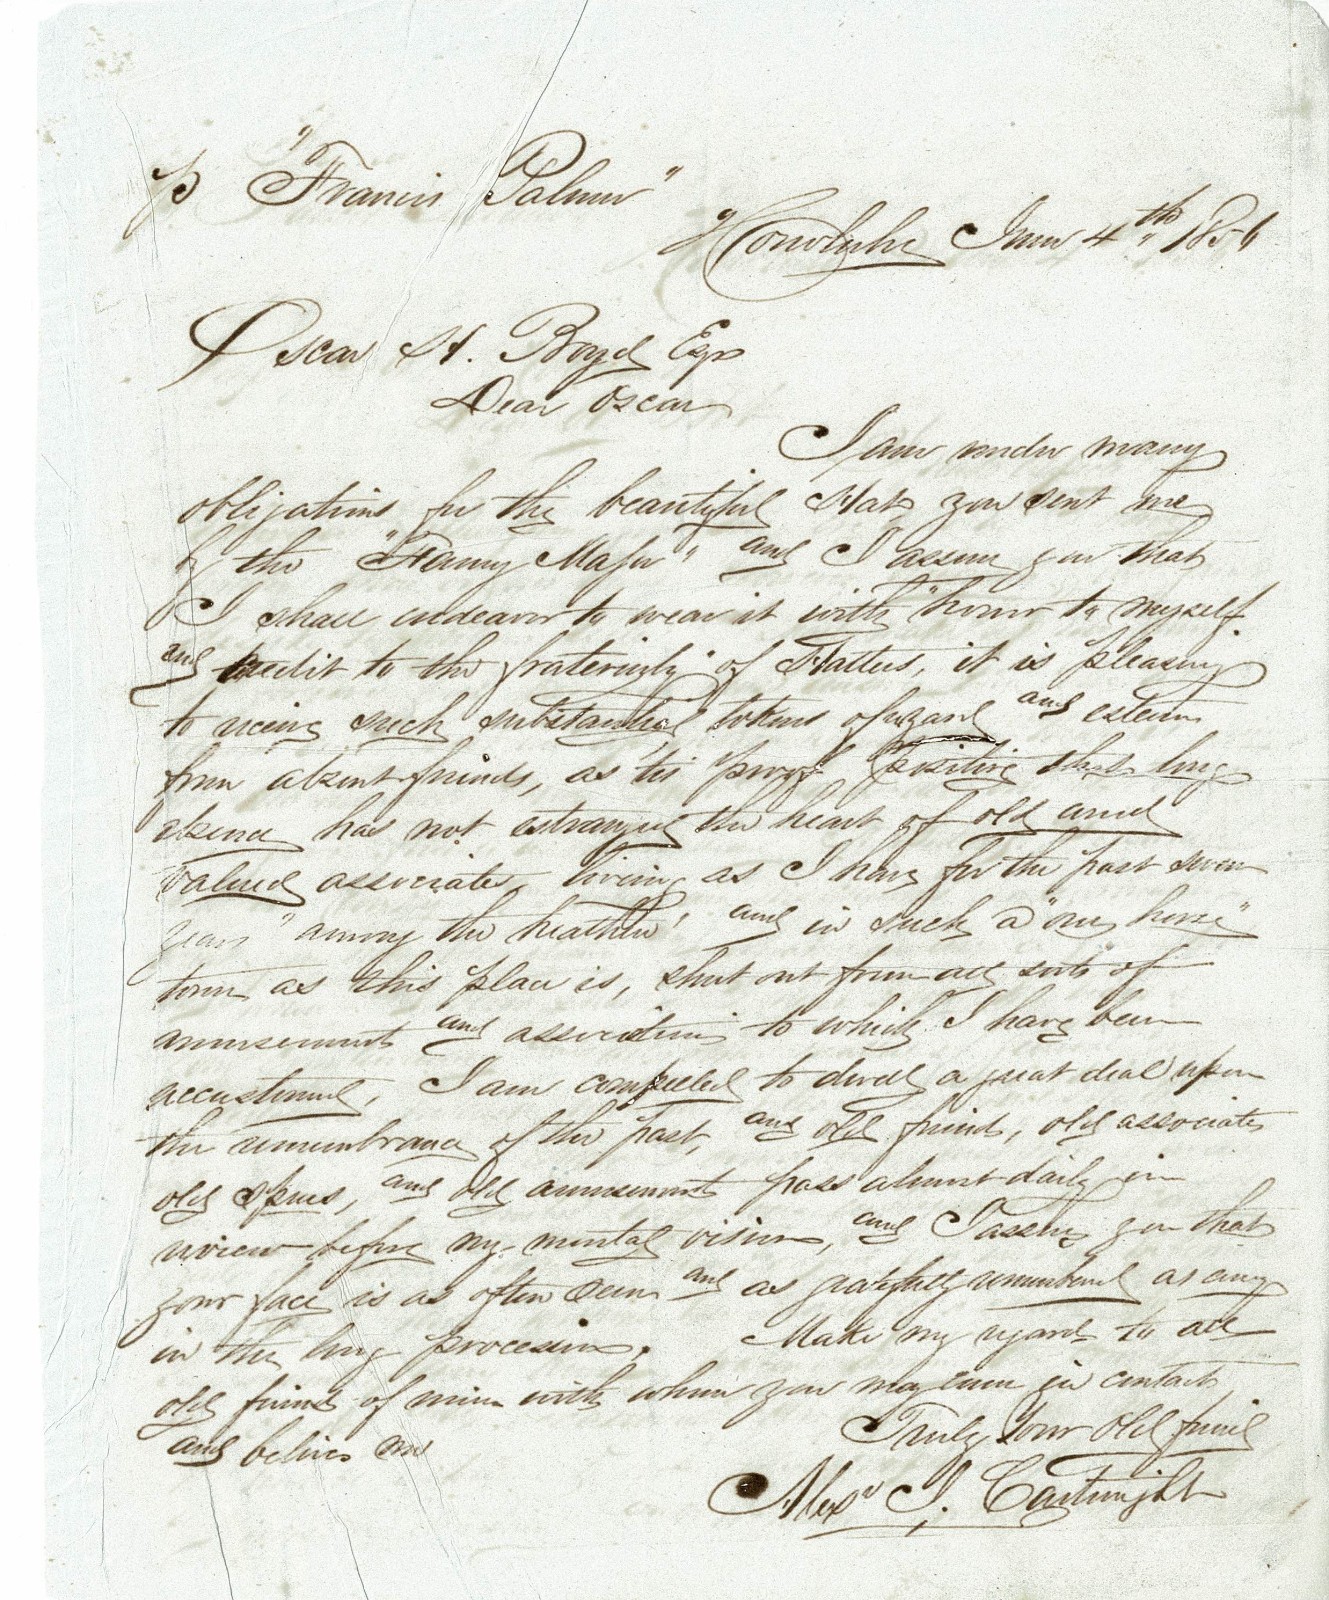 p "Francis Palmer"
Honolulu June 4th 1856
Oscar H. Boyd Esqr
Dear Oscar
I am under many
obligations for the beautiful Hat you sent me
by the "Fanny Major" and I assure you that
I shall endeavor to wear it with "honor to myself
and credit to the fraternity" of Hatters, it is pleasing
to receive such substantial tokens of regard and esteem
from absent friends, as 'tis "proof positive that long
absence has not estranged the heart of old and
valued associates, living as I have for the past seven
years "among the heathen" and in such a "one horse"
town as this place is, shut out from all sorts of
amusements and associations to which I have been
accustomed, I am compelled to dwell a great deal upon
the remembrance of the past, and old friends, old associates
old and old amusements pass almost daily in
review before my mental vision, and I assure you that
your face is as often seen and as gratefully remembered as any
in the long procession. Make my regards to all
old friends of mine with whom you may come in contact,
and believe me
Truly Your Old friend
Alexr J. Cartwright